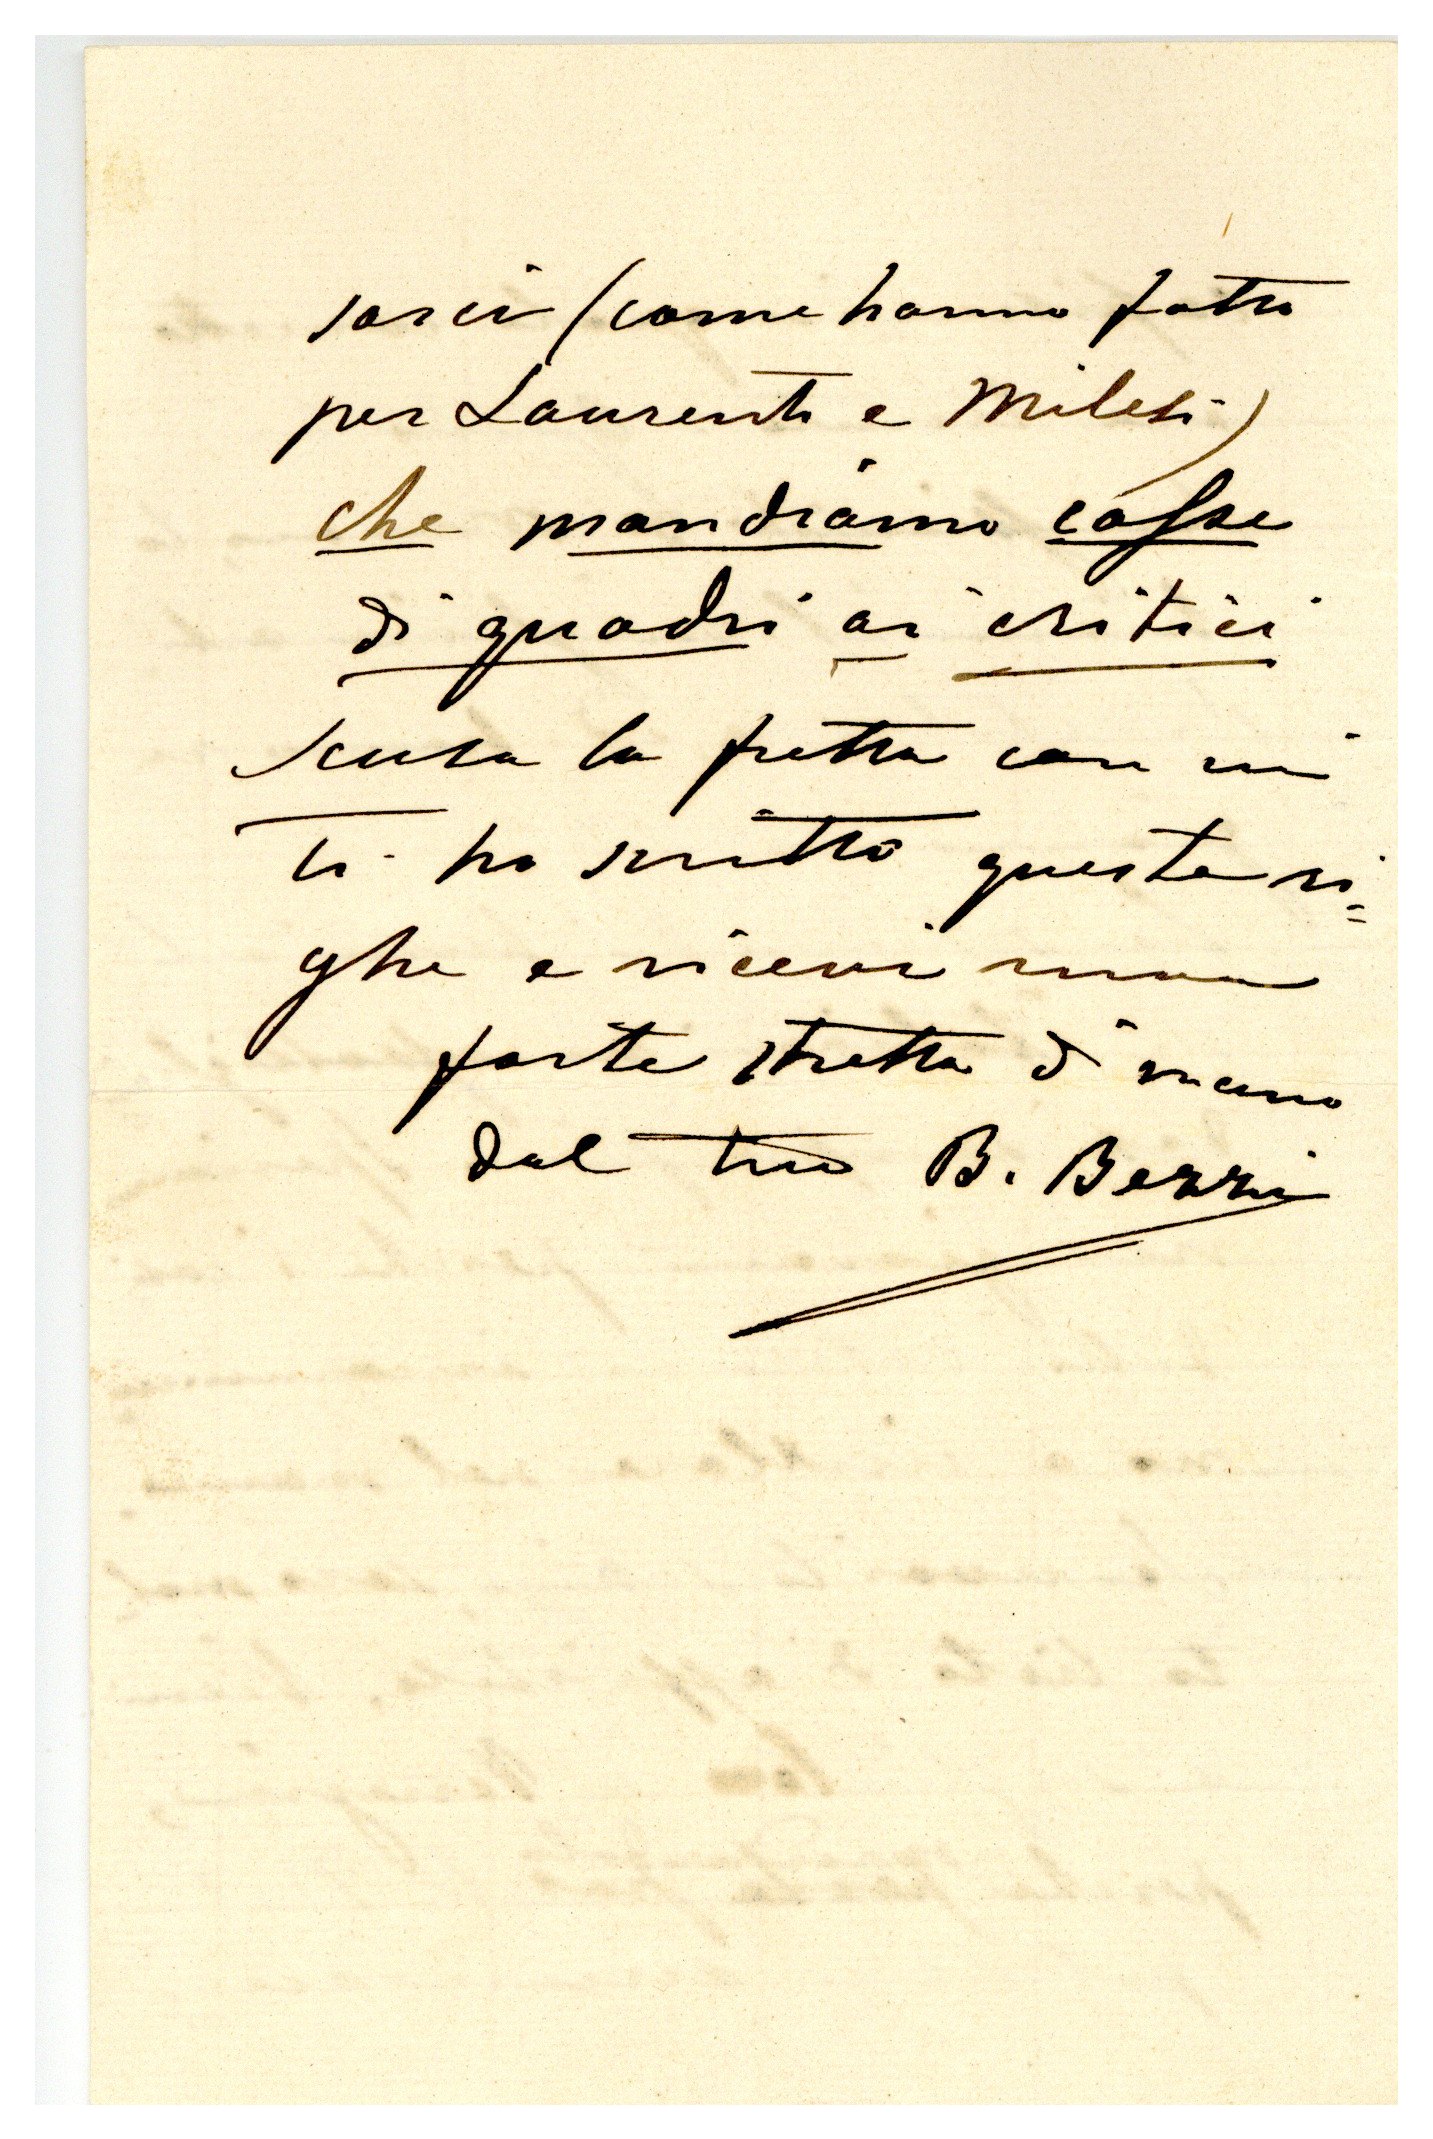 sarci (come hanno fatto
per Laurenti e Milesi)
che mandiamo casse
di quadri ai critici
scusa la fretta con cui
ti ho scritto queste ri=
ghe e ricevi una
forte stretta di mano
dal tuo B. Bezzi